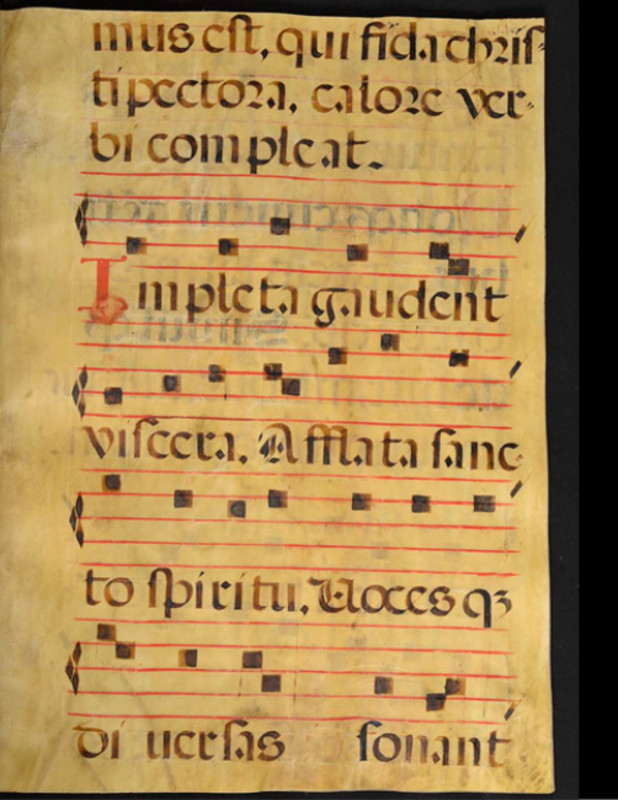 mus eſt, qui fida chriſ-
ti pectora, calore ver-
bi compleat.
Impleta gaudent
viſcera, Afflata ſanc-
to ſpiritu, Uoces qꝫ
di uerſas ſonant